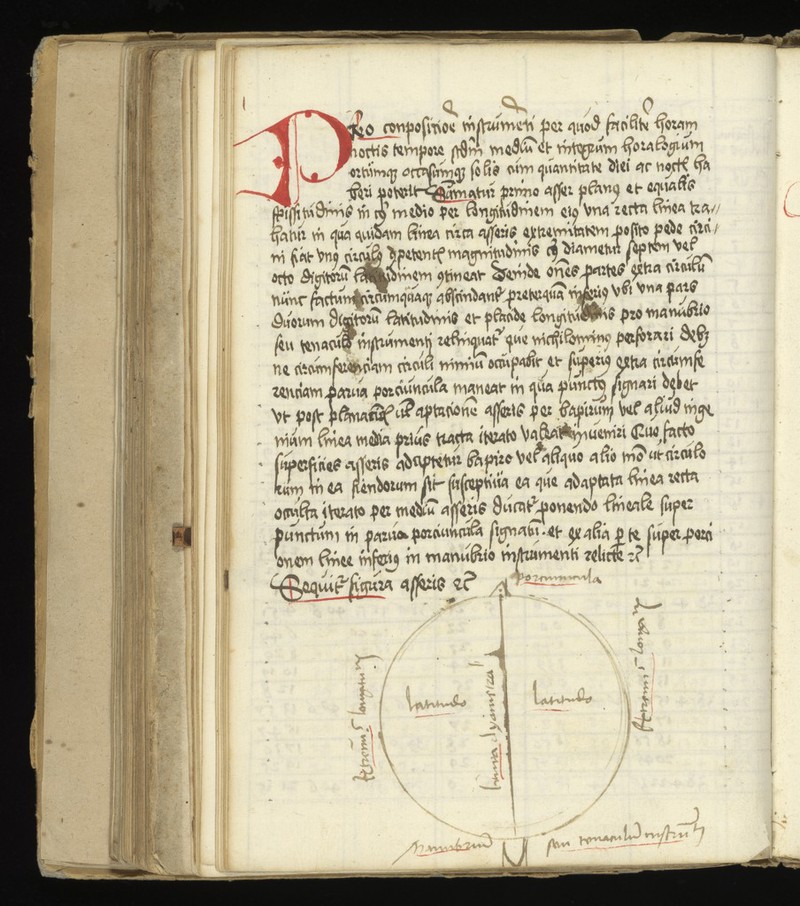 Pro conposicioē instrumēti per quod faciliter horam
noctis tempore scdm mediū et integrum horalogium
ortumq; occasumq; solis cum quantitate diei ac noctꝭ ha
beri poterit Sumatur primo asser planꝰ et equalis
spissitudinis in cuiꝰ medio per longitudinem eiꝰ vna recta linea tra
hatur in qua quidam linea circa asseris extremitatem posito pede circi
ni fiat vnꝰ circulꝰ ꝯpetentꝭ magnitudinis cuiꝰ diametur septem vel
octo digitorū latitudinem ꝯtineat Deinde oēs partes extra circulū
nunc factum circumquaq; abscindantꝛ preterquam inferiꝰ vbi vna pars
duorum digitorū latitudinis et placide longitudinis pro manubrio
seu tenaculo instrumenti relinquatꝛ que nichilominꝰ perforari debꝫ
ne circumferenciam circuli nimiū occupabit et superiꝰ extra circumfe
renciam parua porciuncula maneat in qua punctꝰ signari debet
vt post planacionē vel aptacionē asseris per bapirum vel aliud inge
nium linea media prius tracta iterato valeat inueniri Quo facto
superficies asseris adaptetur bapiro vel aliquo alio mō ut circulo
rum in ea fiendorum sit susceptiua ea que adaptata linea recta
occulta iterato per mediū asseris ducatꝛ ponendo lineale super
punctum in parua porciuncula signatū et ex alia parte super porci
onem linee inferiꝰ in manubrio instrumenti relicte ꝛc
Sequitꝛ figura asseris ꝛc
porciuncula
latitudo
latitudo
linea dyametral
Manubriū
seu tenaculū instrumēti